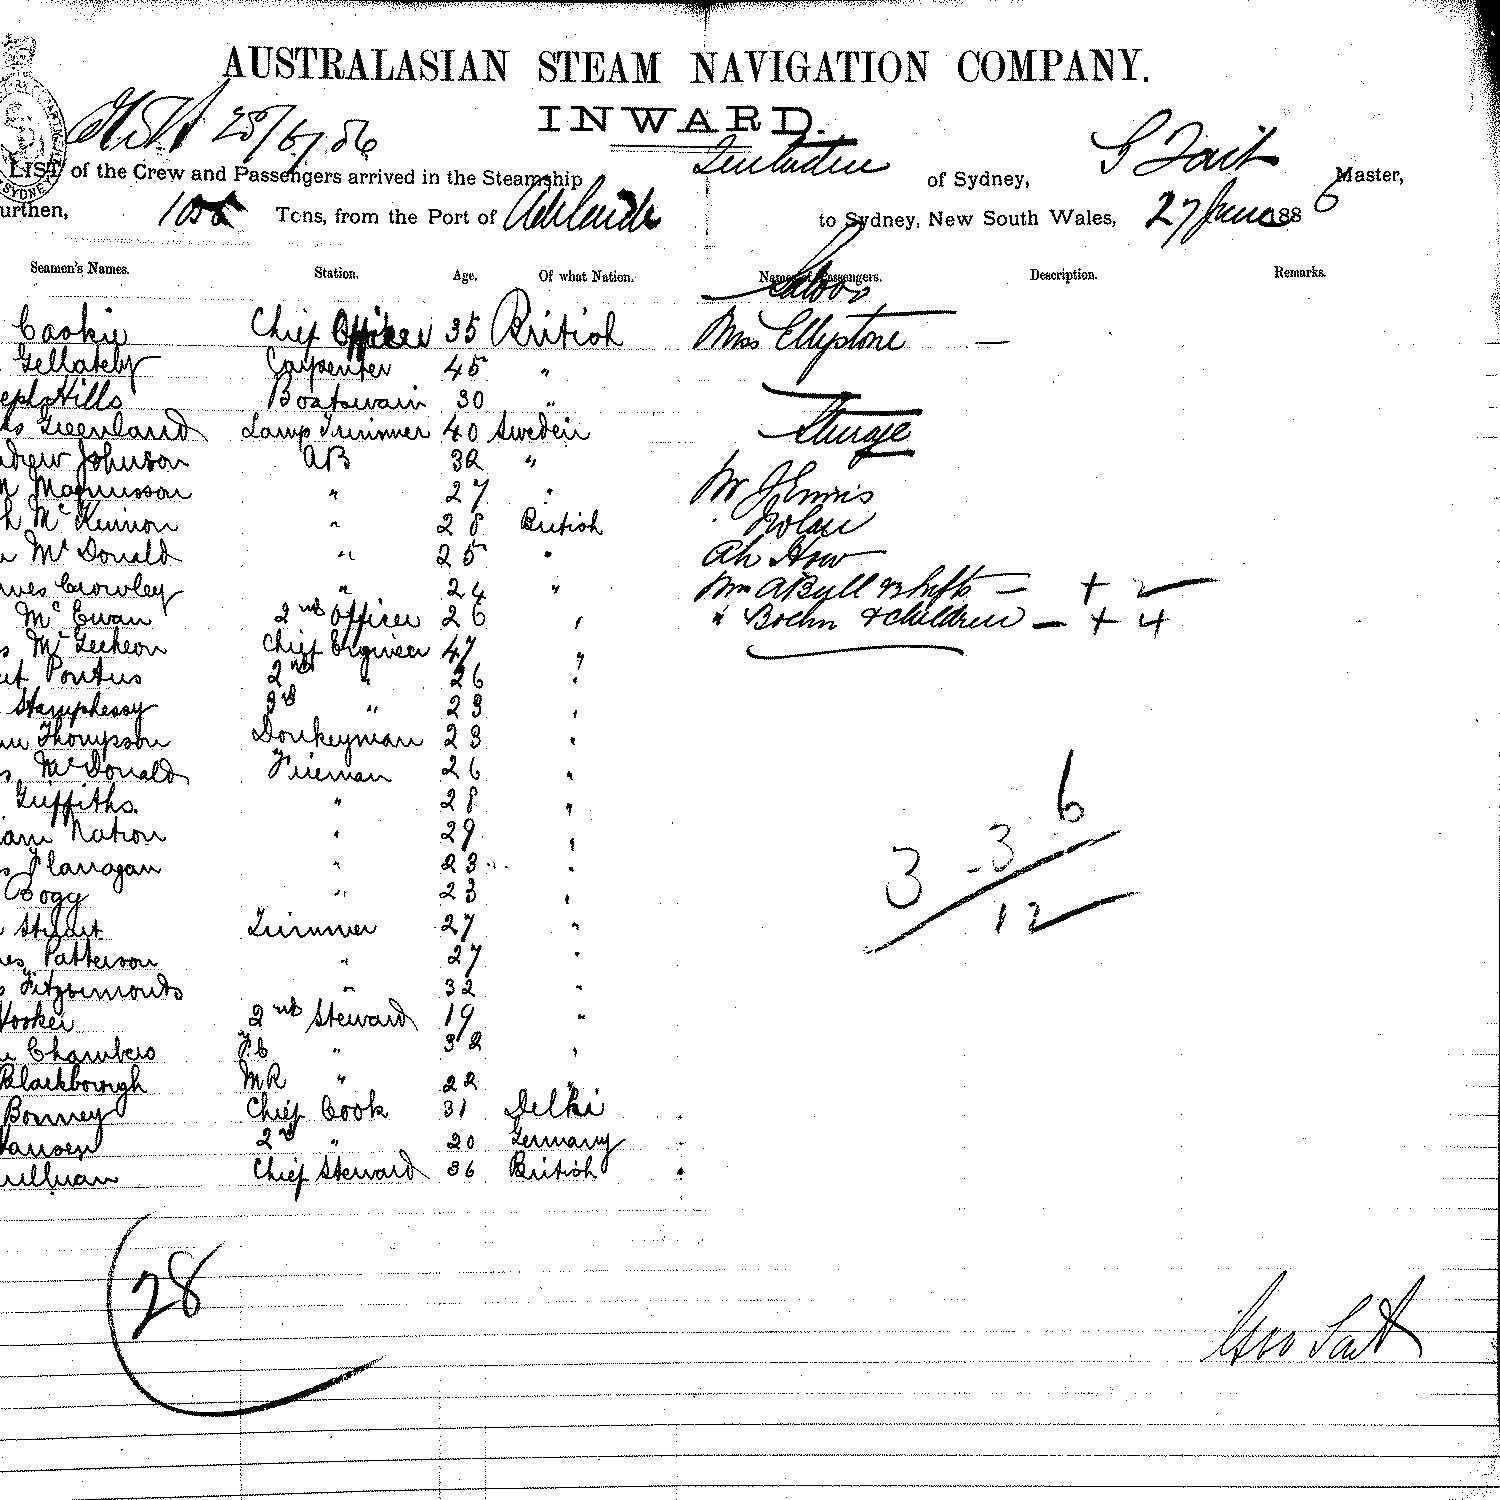 AUSTRALASIAN STEAM NAVIGATION COMPANY.
INWARD.
28/6/86
LIST of the Crew and Passengers arrived in the Steamship of Sydney, G Tait Master,
urthen, Tons, from the Port of Adelaide to Sydney, New South Wales, 27 June 1886
Seamen's Names. Station. Age. Of what Nation. Names of Passengers. Description. Remarks.
Saloon
Cookie Chief Officer 35 British Miss Ellystone —
Gellately Carpenter 45 "
eph Hills Boatswain 30 "
s Greenland Lamp Trimmer 40 Sweden Steerage
drew Johnson AB 32 "
Magnusson " 27 " Mr J Ennis
h McKinnon " 28 British " Nolan
McDonald " 25 " Ah How
mes Crowley " 24 " Mrs A Bull — + 2
McEwan 2nd Officer 26 " " Boehn & children — + 4
s McGecheon Chief Engineer 47 "
Pontus 2nd " 26 "
Stamphessy 3rd " 23 "
Thompson Donkeyman 23 "
s McDonald Fireman 26 "
Griffiths. " 28 "
iam Nation " 29 "
s Flanagan " 23 "
Bogy " 23 "
Stuart Trimmer 27 "
es Patterson " 27 "
s Fitzsimonds " 32 "
Hooker 2nd Steward 19 "
Chambers F.C " 32 "
Blackborough MR " 22 "
Bonney Chief Cook 31 Delhi
Hansen 2nd " 20 Germany
Chief Steward 36 British
6
3 - 3
12
28
Geo Tait